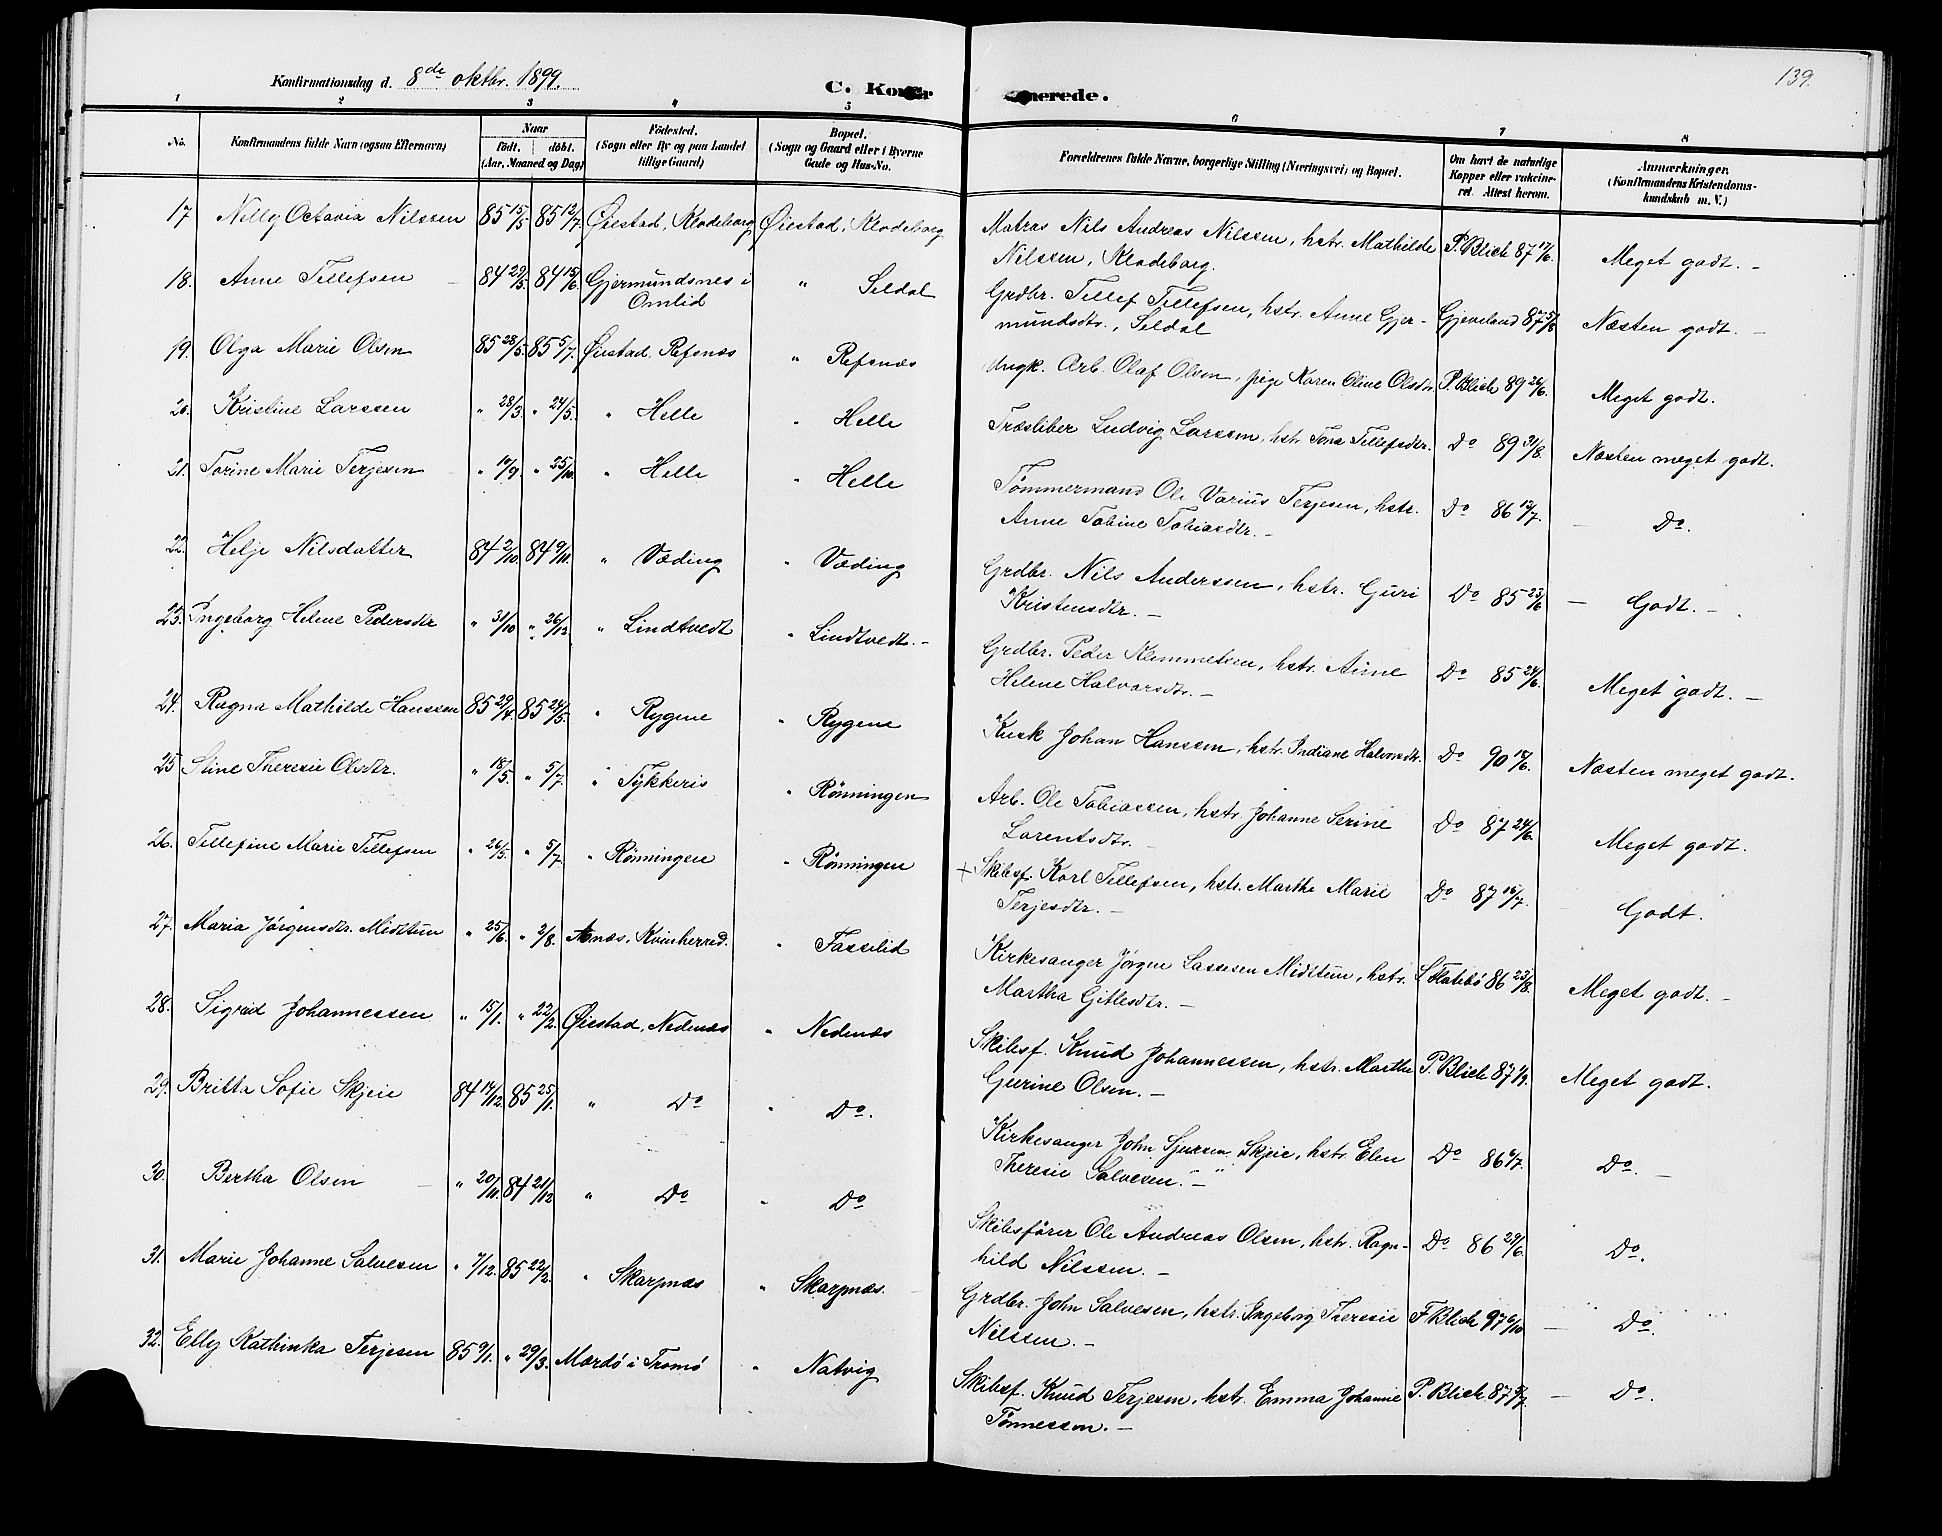 Konfirmationsdag d. 8de oktbr. 1899.
C. Konfir
merede.
139.
1 2 3 4 5 6 7 8
No.
Konfirmandens fulde Navn (ogsaa Efternavn)
Naar
født. døbt.
(Aar, Maaned og Dag)
Fødested.
(Sogn eller By og paa Landet
tillige Gaard)
Bopæl.
(Sogn og Gaard eller i Byerne
Gade og Hus-No.
Forældrenes fulde Navne, borgerlige Stilling (Næringsvei) og Bopæl.
Om havt de naturlige
Kopper eller vakcine-
ret. Attest herom.
Anmærkninger.
(Konfirmandens Kristendoms-
kundskab m. V.)
17 Nelly Octavia Nilssen 85 15/5 85 12/7 Øiestad, Klodeborg Øiestad, Klodeborg Matros Nils Andreas Nilssen, hstr. Mathilde P. Blich 87 17/6. Meget godt. -
Nilssen, Klodeborg.
18. Anne Tellefsen - 84 29/5 84 15/6 Gjermundsnes i " Seldal Grdbr. Tellef Tellefsen, hstr. Anne Gjer- Gjeveland 87 25/8 Næsten godt. -
Omlid mundsdtr., Seldal
19. Olga Marie Olsen 85 28/5 85 5/7 Øiestad, Refsnæs " Refsnæs Ungk. Arb. Olaf Olsen, pige Karen Oline Olsdtr. P. Blich 89 26/6. Meget godt.
20. Kristine Larssen " 28/3 " 24/5. " Helle " Helle Træsliber Ludvig Larssen, hstr. Tone Tellefsdtr. Do 89 31/8. Næsten meget godt.
21. Torine Marie Terjesen " 19/9. " 25/10. " Helle " Helle Tømmermand Ole Varius Terjesen, hstr. Do 86 12/7. - Do.
Anne Tobine Tobiasdtr. -
22. Helje Nilsdatter 84 2/10. 84 9/11. " Væding " Væding Grdbr. Nils Anderssen, hstr. Guri Do 85 23/6 - Godt. -
Kristensdtr. -
23. Ingeborg Helene Pedersdtr " 31/10 " 26/12. " Lindtvedt " Lindtvedt. - Grdbr. Peder Klemmetsen, hstr. Anne Do 85 24/6. Meget godt. -
Helene Halvorsdtr. -
24. Ragna Mathilde Hanssen 85 29/4. 85 24/5. " Rygene " Rygene Kusk Johan Hanssen, hstr. Indiane Halvorsdtr. Do 90 17/6. Næsten meget godt.
25 Stine Theresie Olsdtr. " 18/5. " 5/7. " Tykkeris " Rönningen Arb. Ole Tobiassen, hstr. Johanne Serine Do 87 24/6. Meget godt.
Lorentsdtr. -
26. Tellefine Marie Tellefsen " 26/5. " 5/7 " Rönningen " Rönningen + Skibsf. Karl Tellefsen, hstr. Marthe Marie Do 87 16/7. Godt.
Terjesdtr. -
27. Maria Jørgensdtr. Midttun " 25/6. " 2/8. Ænæs, Kvinherred. " Fasselid Kirkesanger Jørgen Lassesen Midttun, hstr. L. Flatebö 86 23/8. Meget godt. -
Martha Gitlesdtr. -
28. Sigrid Johannessen " 15/1. " 22/2. Øiestad, Nedenæs " Nedenæs Skibsf. Knud Johannessen, hstr. Marthe P. Blich 87 1/9. Meget godt.
Gurine Olsen. -
29. Britta Sofie Skjeie 84 14/12. 85 25/1. " Do " Do. Kirkesanger John Sjursen Skjeie, hstr. Elen Do 86 6/7. Do. -
Theresie Salvesen. -
30. Bertha Olsen - " 20/11. 84 21/12 " Do " Do Skibsfører Ole Andreas Olsen, hstr. Ragn- Do 86 29/6. Do.
hild Nilssen. -
31. Marie Johanne Salvesen " 7/12. 85 22/2. " Skarpnæs " Skarpnæs. Grdbr. John Salvesen, hstr. Ingeborg Theresie F Blich 97 6/10 - Do.
Nilssen. -
32. Elly Kathinka Terjesen 85 9/1. " 29/3. Mærdö i Tromö " Natvig Skibsf. Knud Terjesen, hstr. Emma Johanne P. Blich 87 9/7. - Do.
Tønnessen. -